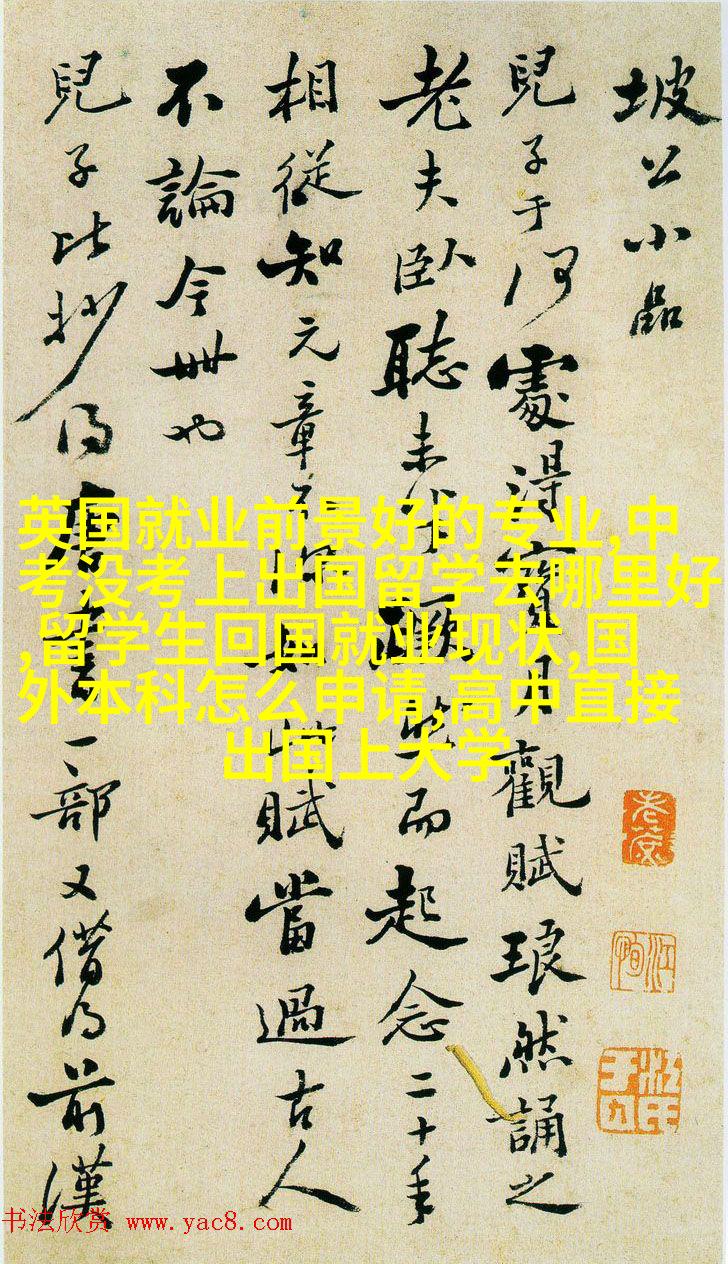 坡公小品
兒子于何處得寶月觀賦琅然誦之
老夫臥聽未半躍然而起念二十年
相從知元章不如此賦當過古人
不論今世也
兒子比抄得唐書一部又借得前漢
英国就业前景好的专业,中
考没考上出国留学去哪里好
,留学生回国就业现状,国
外本科怎么申请,高中直接
出国上大学
书法欣赏 www.yac8.com